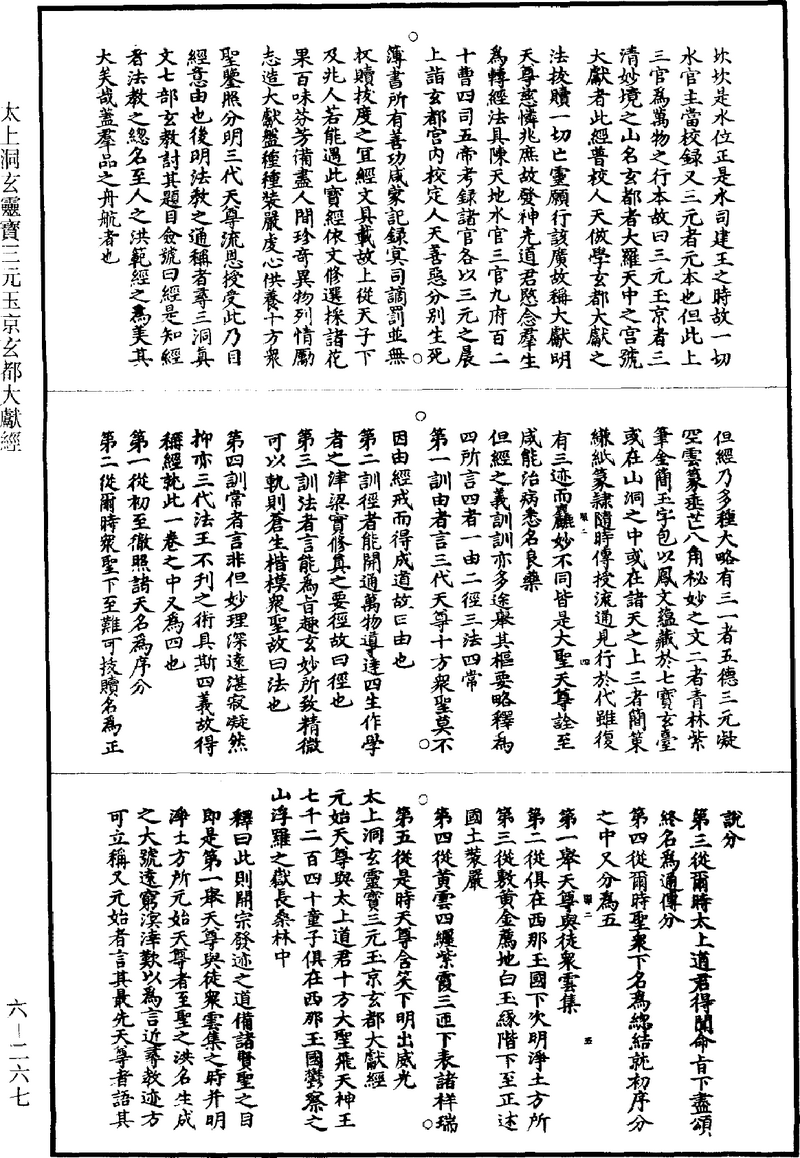 坎坎是水位正是水司建王之時故一切
水官主當校錄又三元者元本也但此上
三官為萬物之行本故曰三元玉京者三
清妙境之山名玄都者大羅天中之宮號
大獻者此經普校人天倣學玄都大獻之
法拔贖一切亡靈願行該廣故稱大獻明
天尊慈憐兆庶故發神光道君愍念羣生
為轉經法具陳天地水官三官九府百二
十曹四司五帝考錄諸官各以三元之晨
上詣玄都宮內校定人天善惡分別生死
簿書所有善功咸家記錄冥司謫罰並無
杈贖拔度之宜經文具載故上從天子下
及兆人若能遇此寶經依文修選採諸花
果百味芬芳備盡人間珍奇異物列情勵
志造大獻盤種種裝嚴虔心供養十方眾
聖鑒照分明三代天尊流恩授受此乃目
經意由也後明法教之通稱者尋三洞真
文七部玄教討其題目僉號曰經是知經
者法教之總名至人之洪範經之為美其
大矣哉蓋羣品之舟航者也
但經乃多種大略有三一者五德三元凝
空雲篆垂芒八角秘妙之文二者青林紫
筆金簡玉字包以鳳文蘊藏於七寶玄臺
或在山洞之中或在諸天之上三者簡策
縑紙篆隸隨時傳授流通見行於代雖復
有三迹而麤妙不同皆是大聖天尊詮至
咸能治病悉名良藥
但經之義訓訓亦多途舉其樞要略釋為
四所言四者一由二徑三法四常
第一訓由者言三代天尊十方眾聖莫不
因由經戒而得成道故曰由也
第二訓徑者能開通萬物導達四生作學
者之津梁實修真之要徑故曰徑也
第三訓法者言能為旨趣玄妙所致精微
可以軌則蒼生楷模眾聖故曰法也
第四訓常者言非但妙理深遠湛寂凝然
抑亦三代法王不刊之術具斯四義故得
稱經就此一卷之中又為四也
第一從初至徹照諸天名為序分
第二從爾時眾聖下至難可拔贖名為正
說分
第三從爾時太上道君得聞命旨下盡頌
終名為通傳分
第四從爾時聖眾下名為總結就初序分
之中又分為五
第一舉天尊與徒眾雲集
第二從俱在西那玉國下次明淨土方所
第三從敷黃金薦地白玉緣階下至正述
國土裝嚴
第四從黃雲四纏紫霞三匝下表諸祥瑞
第五從是時天尊含笑下明出威光
太上洞玄靈寶三元玉京玄都大獻經
元始天尊與太上道君十方大聖飛天神王
七千二百四十童子俱在西那玉國鬱察之
山浮羅之嶽長桑林中
釋曰此則開宗發迹之道備諸賢聖之目
即是第一舉天尊與徒眾雲集之時并明
淨土方所元始天尊者至聖之洪名生成
之大號遠窮溟涬歎以為言近尋教迹方
可立稱又元始者言其最先天尊者語其
太上洞玄靈寶三元玉京玄都大獻經
六—二六七